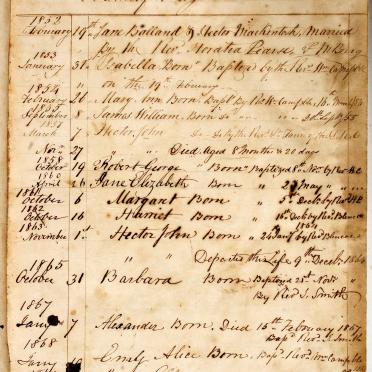 Family
1852
February 19th Jane Balland & Hector Mackintosh, Married
by the Revd. Horatio Pearse, P.M. Berg
1853
January 31 Isabella Born Baptized by the Revd. Wm Campbell
on the 19th February
1854
February 26 Mary Ann Born Bapt By Rev W. Campbl 16th
1855
September 8 James William Born
1857
March 7 Hector John
Novr. 27 " " Died Aged 8 Month & 20 days
1858
October 19 Robert George " Born Baptzd 8th Nov. by Rev
1860
April 26 Jane Elizabeth Born " 27 May " " "
1861
October 6 Margaret Born " 5th Dect by Rev
1862
October 16 Harriet Born " by Rev
1863
November 1st Hector John Born " 24 Jany by Rev
1864
" " Departed this Life 9th Decbr 1864
1865
October 31 Barbara Born Baptized 25th Novr
By Revd J. Smith
1867
Jany 7 Alexander Born, Died 15th February 1867
Bapt Rev J. Smith
1868
Jany Emily Alice Born. Bapt. Rev Wm Campble